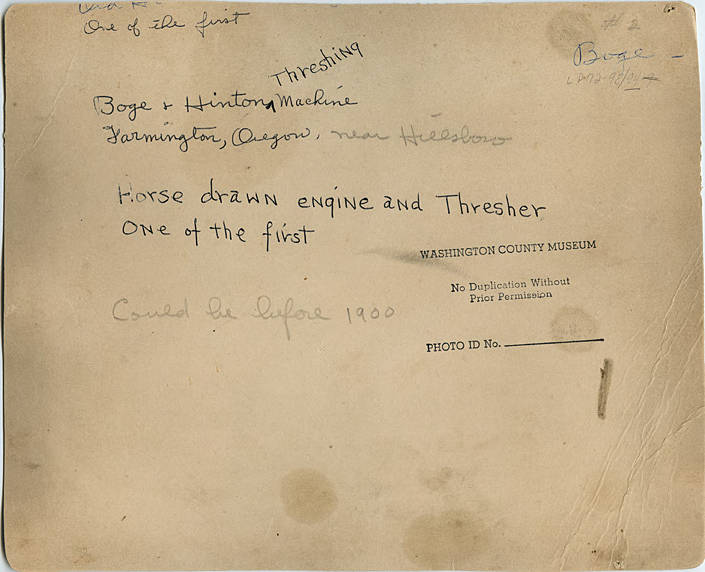 One of the first
# 2
Boge -
Threshing
Boge & Hinton ^ Machine
Farmington, Oregon, near Hillsboro
Horse drawn engine and Thresher
One of the first
WASHINGTON COUNTY MUSEUM
No Duplication Without
Prior Permission
Could be before 1900
PHOTO ID No.